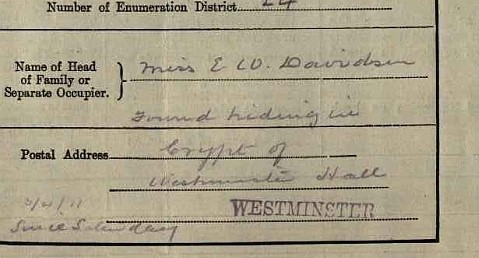 Number of Enumeration District 24
Name of Head of Family or Separate Occupier. } Miss E W. Davidson
Found hiding in
Postal Address Crypt of
Westminster Hall
WESTMINSTER
3/4/11
Since Saturday